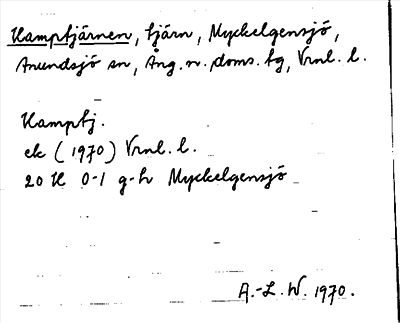 Kamptjärnen, tjärn, Myckelgensjö,
Anundsjö sn, Ång. n. doms. tg, Vrnl. l.
Kamptj.
ek (1970) Vrnl. l.
20 H 0-1 g-h Myckelgensjö
A.-L. W. 1970.